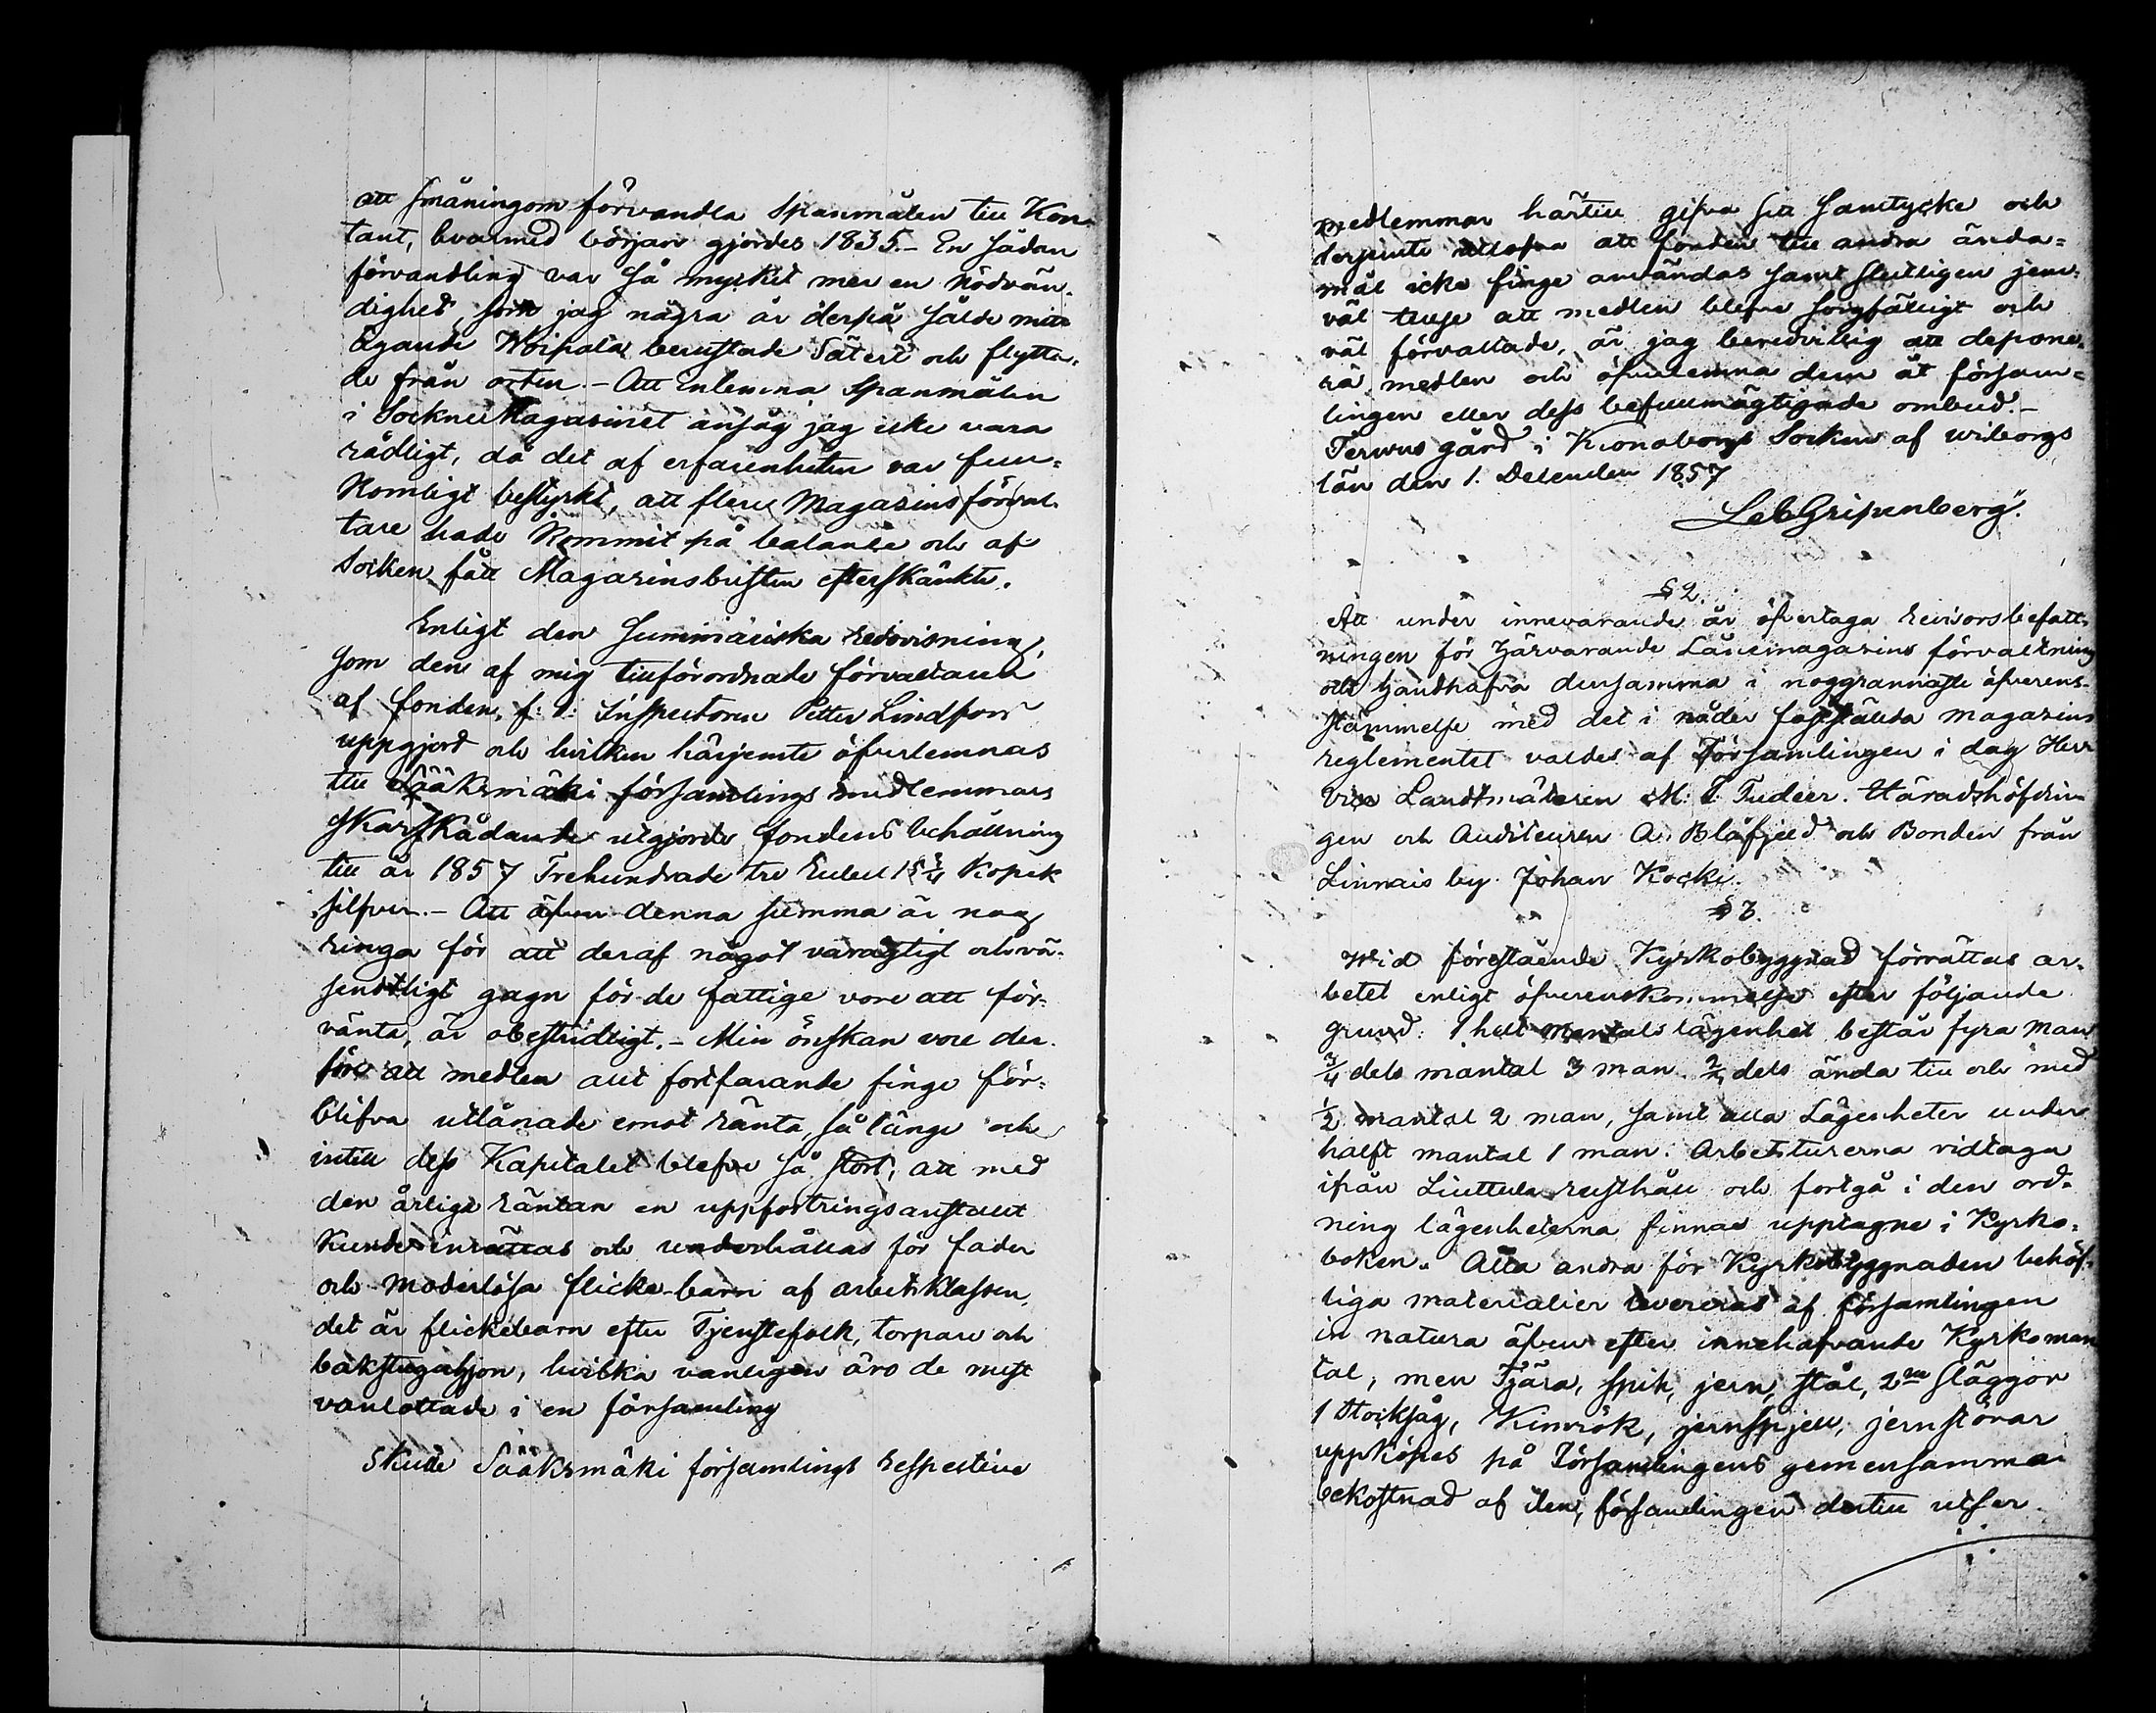 att småningom förvandla Spanmålen till Kon-
tant, hvarmed början gjordes 1835. – En sådan
förvandling var så mycket mer en nödvän-
dighet, som jag några år derpå sålde mitt
ägande Woipala berustade Säteri och flytta-
de från orten. – Att inlemna Spanmålen
i Sockne Magasinet ansåg jag icke vara
rådligt, då det af erfarenheten var full-
komligt bestyrkt, att flere Magasins förval-
tare hade kommit på balance och af
Socken fått Magasinsbristen efterskänkte.
Enligt den Summariska redovisning,
som den af mig tillförordnade förvaltaren
af fonden, f. d. Inspectoren Petter Lindfors
uppgjord och hvilken härjemte öfverlemnas
till Sääksmäki församlings medlemmars
skärskådande utgjorde fondens behållning
till år 1857 Trehundrade tre Rubel 15 3/4 Kopek
silfver. – Att äfven denna summa är nog
ringa för att deraf något varagtigt och vä-
sendtligt gagn för de fattige vore att för-
vänta, är obestridligt. – Min önskan vore der-
före att medlen allt fortfarande finge för-
blifva utlånade emot ränta, så länge och
intill dess Kapitalet blefve så stort, att med
den årliga räntan en uppfostringsanstalt
kunde inrättas och underhållas för fader
och moderlösa flicke-barn af arbetsklassen,
det är flickebarn efter Tjenstefolk, torpare och
bakstugahjon, hvilka vanligen äro de mest
vanlottade i en församling
Skulle Sääksmäki församlings respective
medlemmar härtill gifva sitt samtycke och
derjemte att fonden till andra ända-
mål icke finge användas samt slutligen jem-
väl tillse att medlen blefve sorgfälligt och
väl förvaltade, är jag beredvillig att depone-
ra medlen och öfverlemna dem åt försam-
lingen eller dess befullmägtigade ombud. –
Terwus gård i Kronoborgs Socken af Wiborgs
län den 1. December 1857
Gripenberg".
§ 2.
Att under innevarande år öfvertaga Revisorsbefatt-
ningen för härvarande Lånemagasins förvaltning
och handhafva densamma i noggrannaste öfverens-
stämmelse med det i nåder fastställda magasins
reglementet valdes af Församlingen i dag Herr
Vice Landtmätaren M. T. Tudeer. Häradshöfdin-
gen och Auditeuren A. Blåfjeld och Bonden från
Linnais by Johan Kocki.
§ 3.
Wid förestående Kyrkobyggnad förrättas ar-
betet enligt öfverenskommelse efter följande
grund: 1 helt Mantals lägenhet består fyra Man
3/4 dels mantal 3 man. dels ända till och med
1/2 mantal 2 man, samt alla Lägenheter under
halft mantal 1 man. Arbetsturerna vidtaga
ifrån Liuttula rusthåll och fortgå i den ord-
ning lägenheterna finnas upptagne i Kyrko-
boken. Alla andra för Kyrkobyggnaden behöf-
liga materialier levereras af församlingen
in natura äfven efter innehafvande Kyrkoman
tal, men Tjära, spik, jern, stål, 2ne släggor
1 Stocksåg, Kimrök, jernspjell, jernstörar
uppköpes på Församlingens gemensamma
bekostnad af den, församlingen dertill utser.